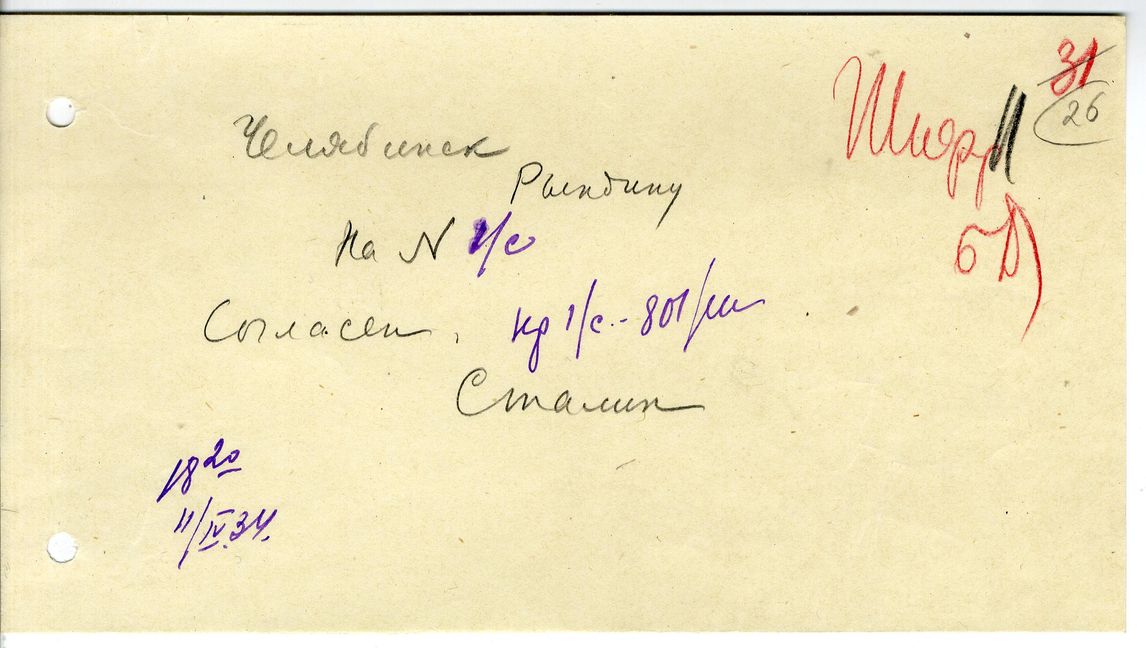 31
26
Шифр
БД
Челябинск
Рындину
На N 1/с
Согласен. кр 1/с.-801/ш
Сталин
18 20
11/IV.34.